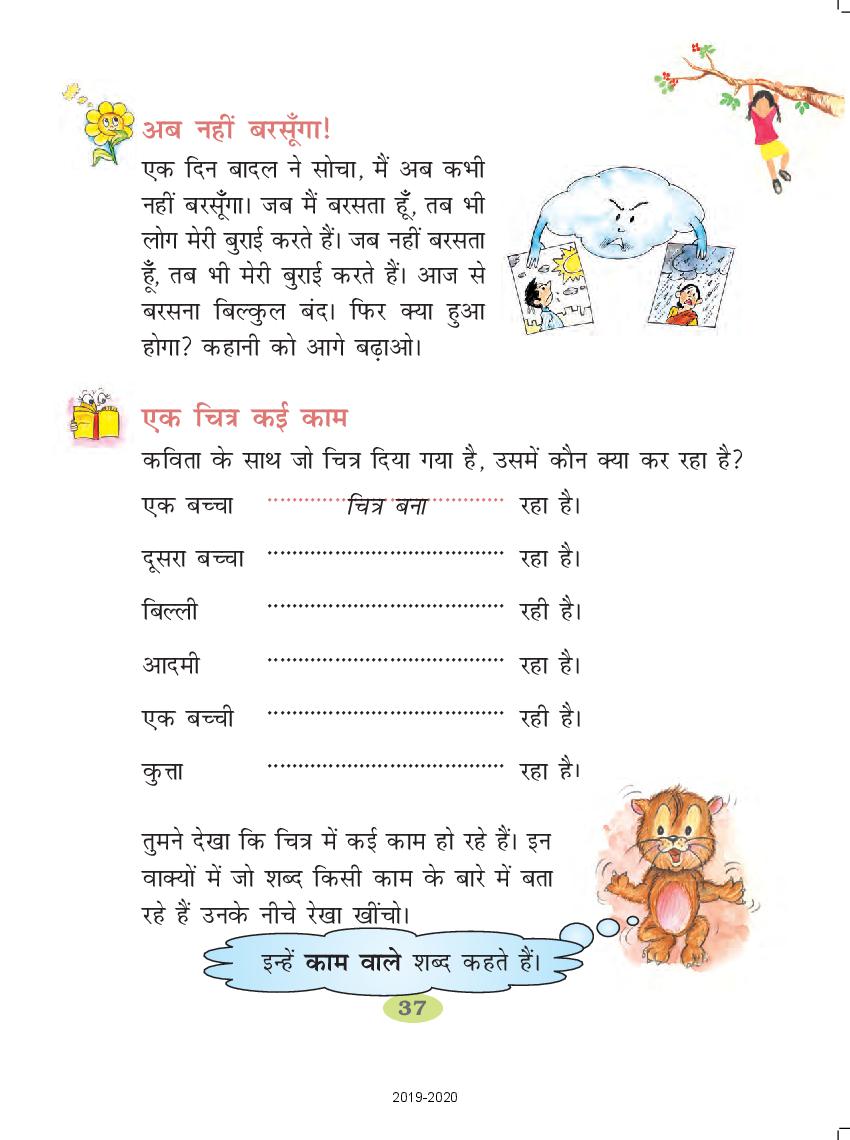 अब नहीं बरसूँगा!
एक दिन बादल ने सोचा, मैं अब कभी
नहीं बरसूँगा। जब मैं बरसता हूँ, तब भी
लोग मेरी बुराई करते हैं। जब नहीं बरसता
हूँ, तब भी मेरी बुराई करते हैं। आज से
बरसना बिल्कुल बंद। फिर क्या हुआ
होगा? कहानी को आगे बढ़ाओ।
एक चित्र कई काम
कविता के साथ जो चित्र दिया गया है, उसमें कौन क्या कर रहा है?
एक बच्चा चित्र बना रहा है।
दूसरा बच्चा ........................................ रहा है।
बिल्ली ........................................ रही है।
आदमी ........................................ रहा है।
एक बच्ची ........................................ रही है।
कुत्ता ........................................ रहा है।
तुमने देखा कि चित्र में कई काम हो रहे हैं। इन
वाक्यों में जो शब्द किसी काम के बारे में बता
रहे हैं उनके नीचे रेखा खींचो।
इन्हें काम वाले शब्द कहते हैं।
37
2019-2020